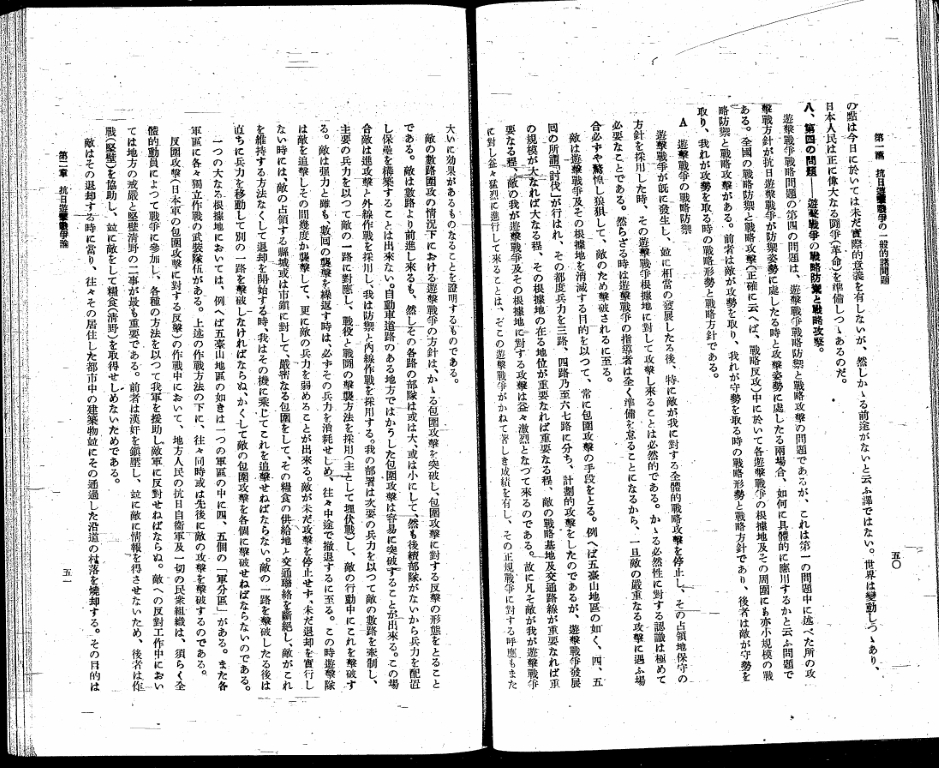 第一編 抗日遊擊戰爭の一般的諸問題
五〇
の點は今日に於いては未だ實際的意義を有しないが、然しかゝる前途がないと云ふ譯ではない。世界は變動しつゝあり、
日本人民は正に偉大なる鬪爭(革命)を準備しつゝあるのだ。
八、第四の問題 遊擊戰爭の戰略防禦と戰略攻擊。
遊擊戰爭戰略問題の第四の問題は、遊擊戰爭戰略防禦と戰略攻擊の問題であるが、これは第一の問題中に述べた所の攻
擊戰方針が抗日遊擊戰爭が防禦姿勢に處したる時と攻擊姿勢に處したる兩場合、如何に具體的に應用するかと云ふ問題で
ある。全國の戰略防禦と戰略攻擊(正確に云へば、戰略反攻)中に於いて各遊擊戰爭の根據地及その周圍にも亦小規模の戰
略防禦と戰略攻擊がある。前者は敵が攻勢を取り、我れが守勢を取る時の戰略形勢と戰略方針であり、後者は敵が守勢を
取り、我れが攻勢を取る時の戰略形勢と戰略方針である。
A 遊擊戰爭の戰略防禦
遊擊戰爭が旣に發生し、並に相當の發展したる後、特に敵が我に對する全體的戰略攻擊を停止し、その占領地保守の
方針を採用した時、その遊擊戰爭根據地に對して攻擊し來ることは必然的である。かゝる必然性に對する認識は極めて
必要なことである。然らざる時は遊擊戰爭の指導者は全く準備を怠ることになるから、一旦敵の嚴重なる攻擊に遇ふ場
合必ずや驚惶し狼狽して、敵のため擊破されるに至る。
敵は遊擊戰爭及その根據地を消滅する目的を以つて、常に包圍攻擊の手段をとる。例へば五臺山地區の如く、四、五
回の所謂「討伐」が行はれ、その都度兵力を三路、四路乃至六七路に分ち、計劃的攻擊をしたのであるが、遊擊戰爭發展
の規模が大なれば大なる程、その根據地の在る地位が重要なれば重要なる程、敵の戰略基地及交通路線が重要なれば重
要なる程、敵の我が遊擊戰爭及その根據地に對する攻擊は益々激烈となつて來るのである。故に凡そ敵が我が遊擊戰爭
に對し益々猛烈に進行して來ることは、そこの遊擊戰爭がかねて著しき成績を有し、その正規戰爭に對する呼應もまた
大いに効果があるものなることを證明するものである。
敵の數路圍攻の情況下における遊擊戰爭の方針は、かゝる包圍攻擊を突破し、包圍攻擊に對する反擊の形態をとること
である。敵は數路より前進し來るも、然しその各路の部隊は或は大、或は小にして、然も後續部隊がないから兵力を配置
し保壘を構築することは出來ない。自動車道路のある地方ではかうした包圍攻擊は容易に突破することが出來る。この場
合敵は進攻擊と外線作戰を採用し、我は防禦と內線作戰を採用する。我の部署は次要の兵力を以つて敵の數路を牽制し、
主要の兵力を以つて敵の一路に對應し、戰役と戰鬪の襲擊方法を採用(主として埋伏戰)し、敵の行動中にこれを擊破す
る。敵は强力と雖も、數回の襲擊を繰返す時は、必ずその兵力を消耗せしめ、往々中途で撤退するに至る。この時遊擊隊
は敵を追擊しその間幾度か襲擊して、更に敵の兵力を弱めることが出來る。敵が未だ攻擊を停止せず、未だ退却を實行し
ない時には、敵の占領する縣城或は市鎭に對して、嚴密なる包圍をして、その糧食の供給地と交通聯絡を斷絕し、敵がこれ
を維持する方法なくして退却を開始する時、我はその機に乘じてこれを追擊せねばならない。敵の一路を擊破したる後は
直ちに兵力を移動して別の一路を擊破しなければならぬ、かくして敵の包圍攻擊を各個に擊破せねばならないのである。
一つの大なる根據地においては、例へば五臺山地區の如きは一つの軍區の中に四、五個の「軍分區」がある。また各
軍區に各々獨立作戰の武裝隊伍がある。上述の作戰方法の下に、往々同時或は先後に敵の攻擊を擊破するのである。
反圍攻擊(日本軍の包圍攻擊に對する反擊)の作戰中において、地方人民の抗日自衛軍及一切の民衆組織は、須らく全
體的動員によつて戰爭に參加し、各種の方法を以つて我軍を援助し敵軍に反對せねばならぬ。敵への反對工作中におい
ては地方の戒嚴と堅壁淸野の二事が最も重要である。前者は漢奸を鎭壓し、並に敵に情報を得させないため、後者は作
戰(堅壁)を協助し、並に敵をして糧食(淸野)を取得せしめないためである。
敵はその退却する時に當り、往々その居住した都市中の建築物並にその通過した沿道の村落を燒却する。その目的は
第二章 抗日遊擊戰爭論
五一